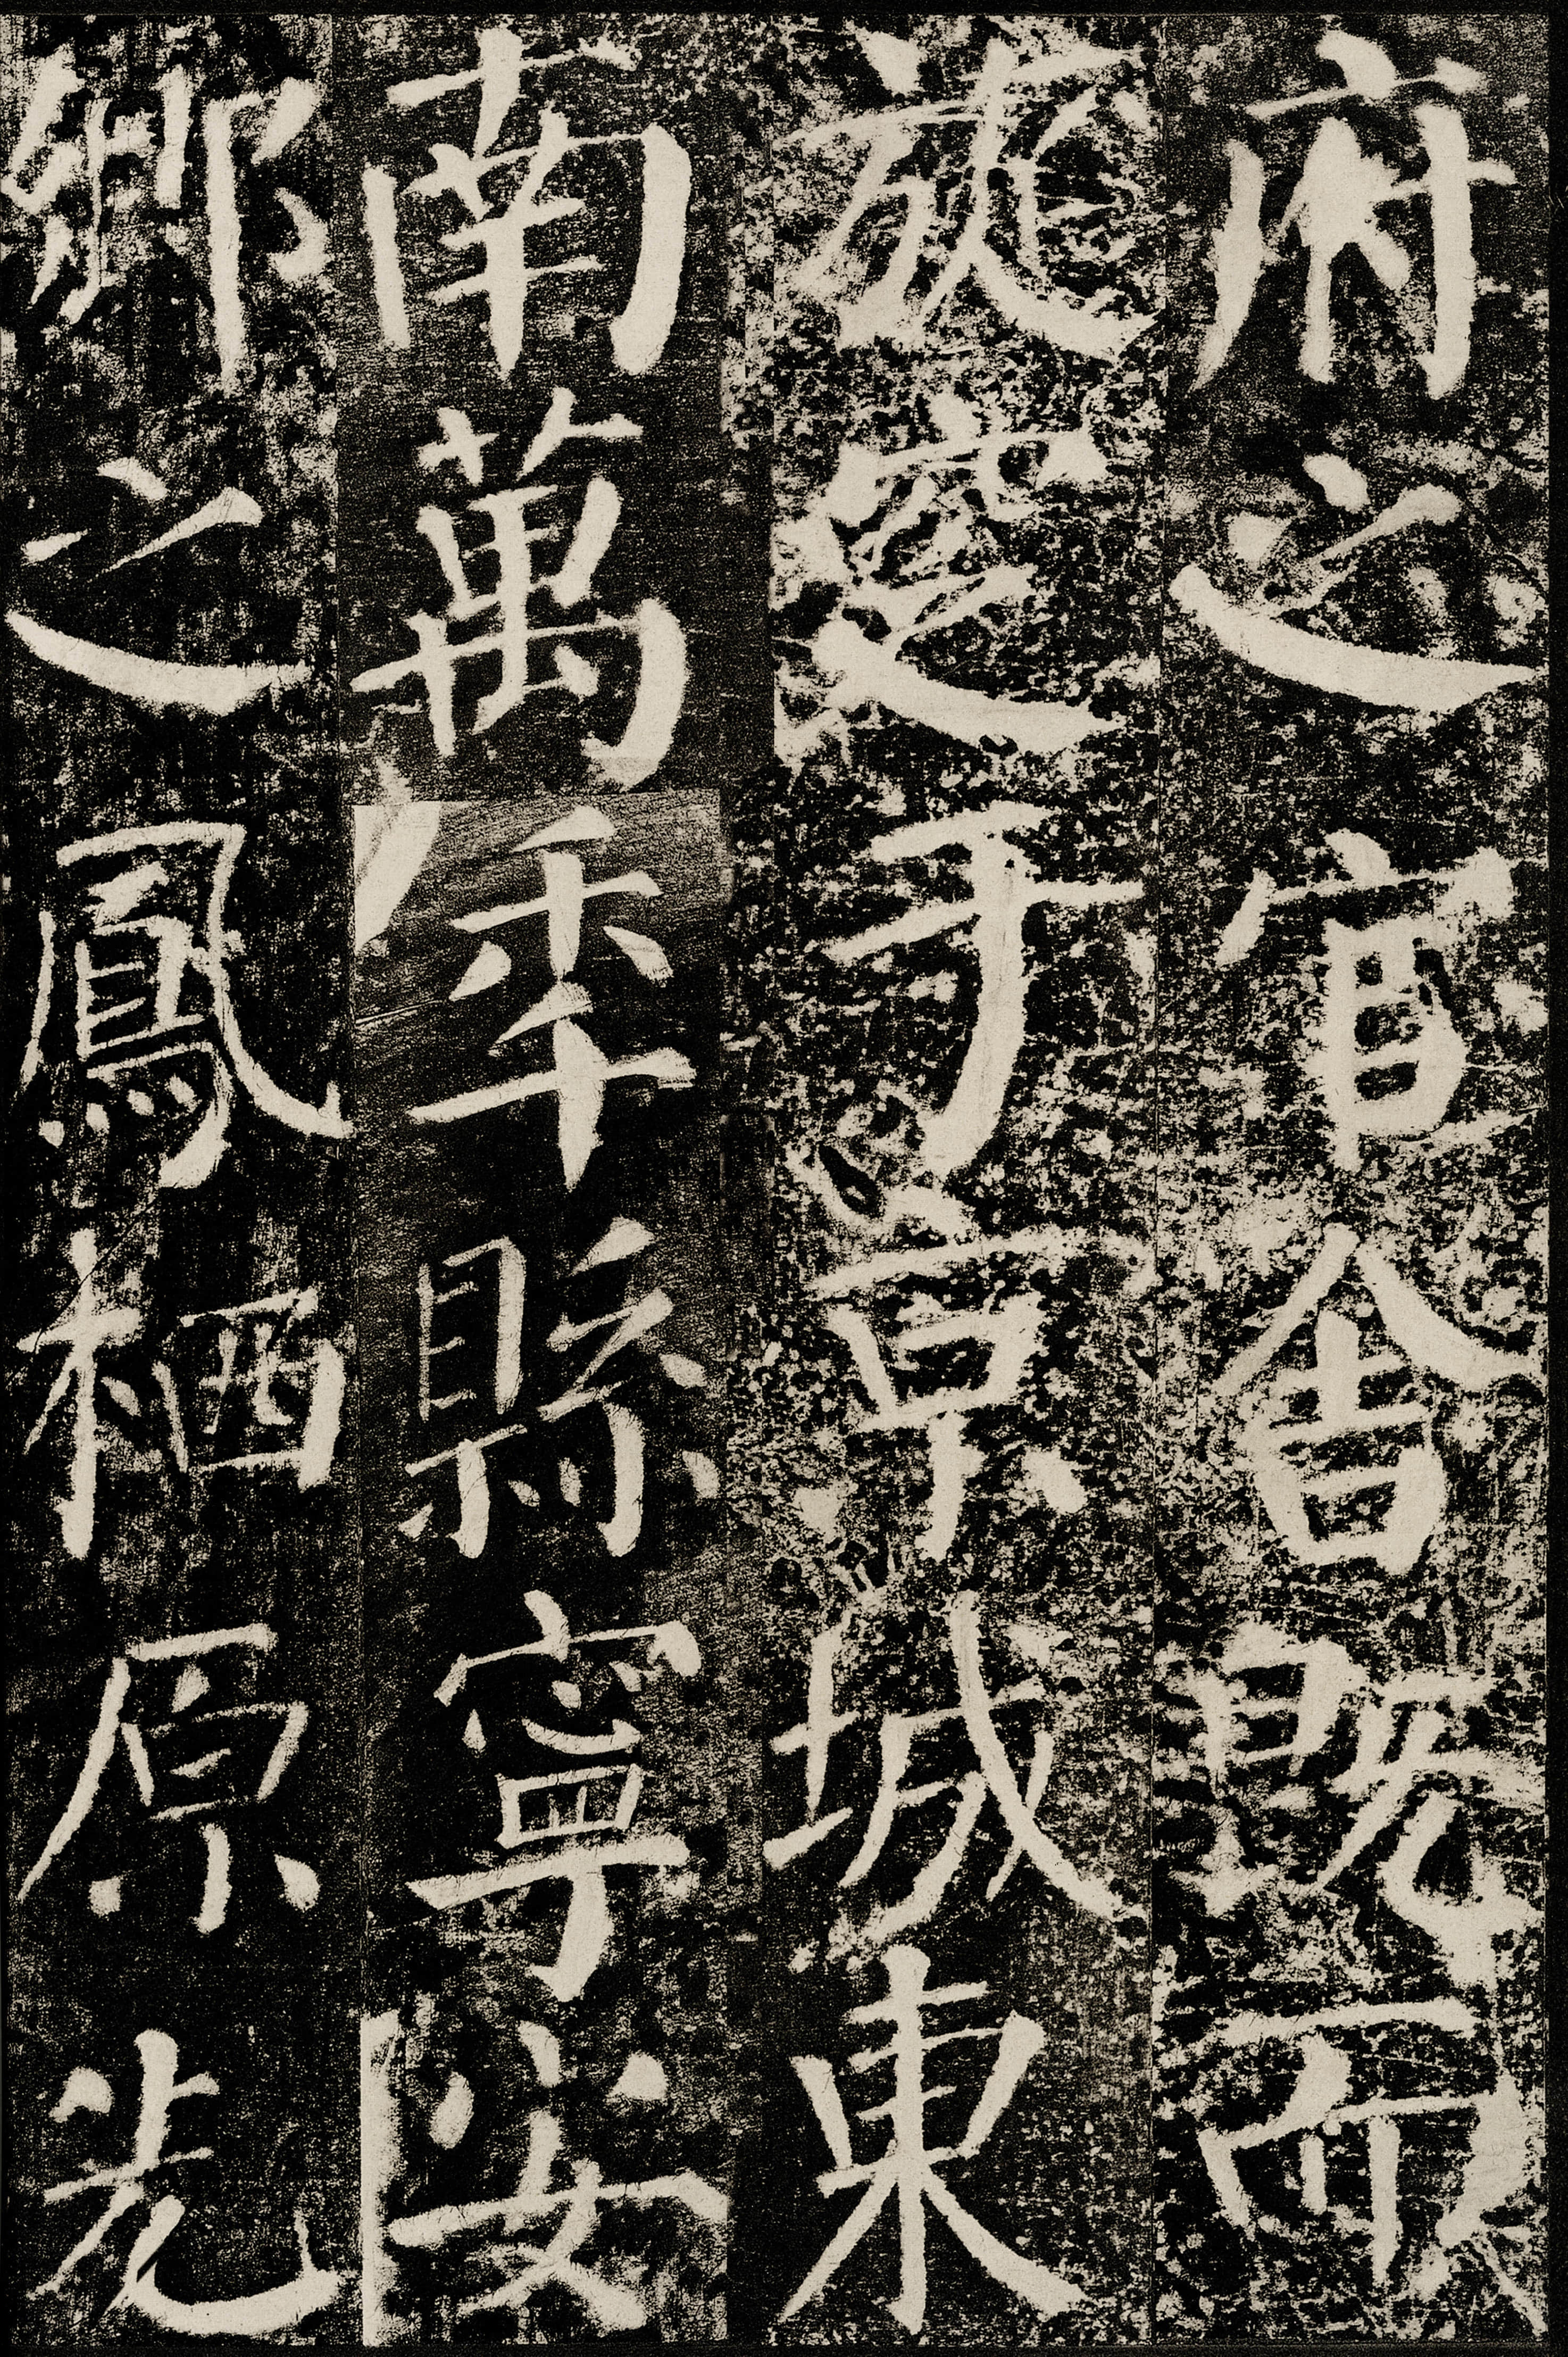 府之官舍既而
旋窆于京城東
南萬秊縣寧安
鄉之鳳栖原先